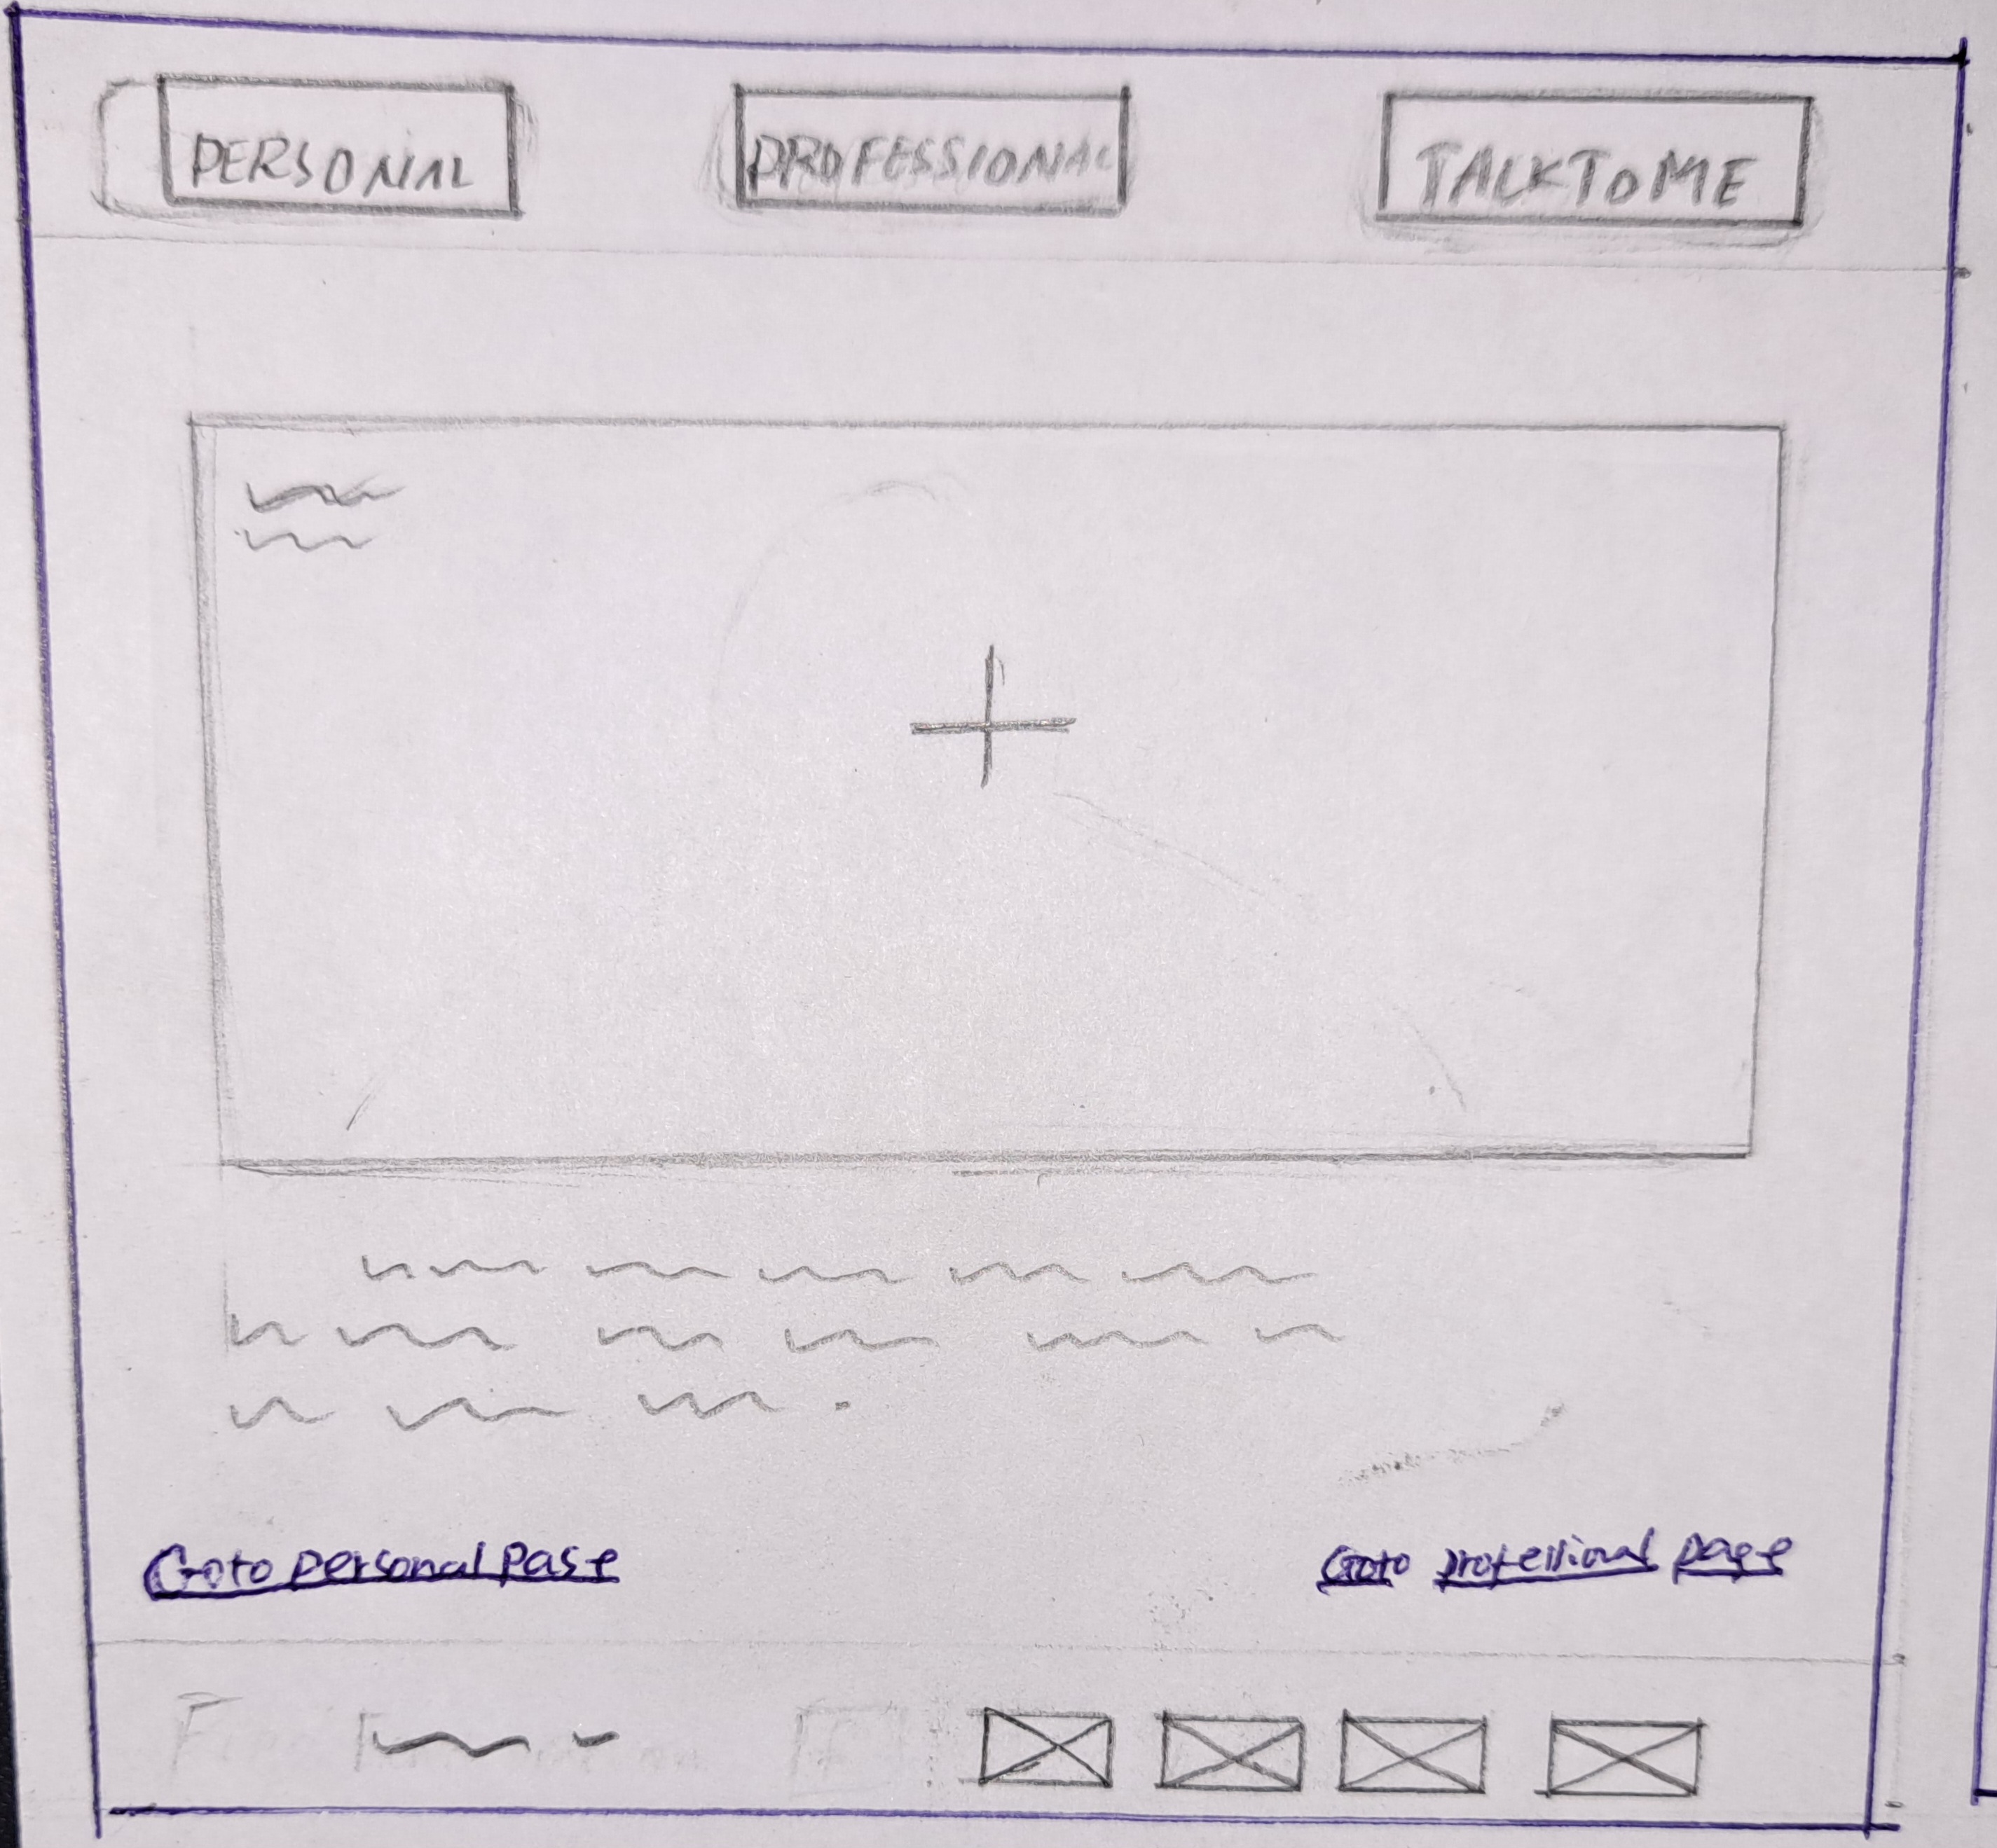 PERSONAL PROFESSIONAL TALK TO ME
Goto personal page Goto professional page